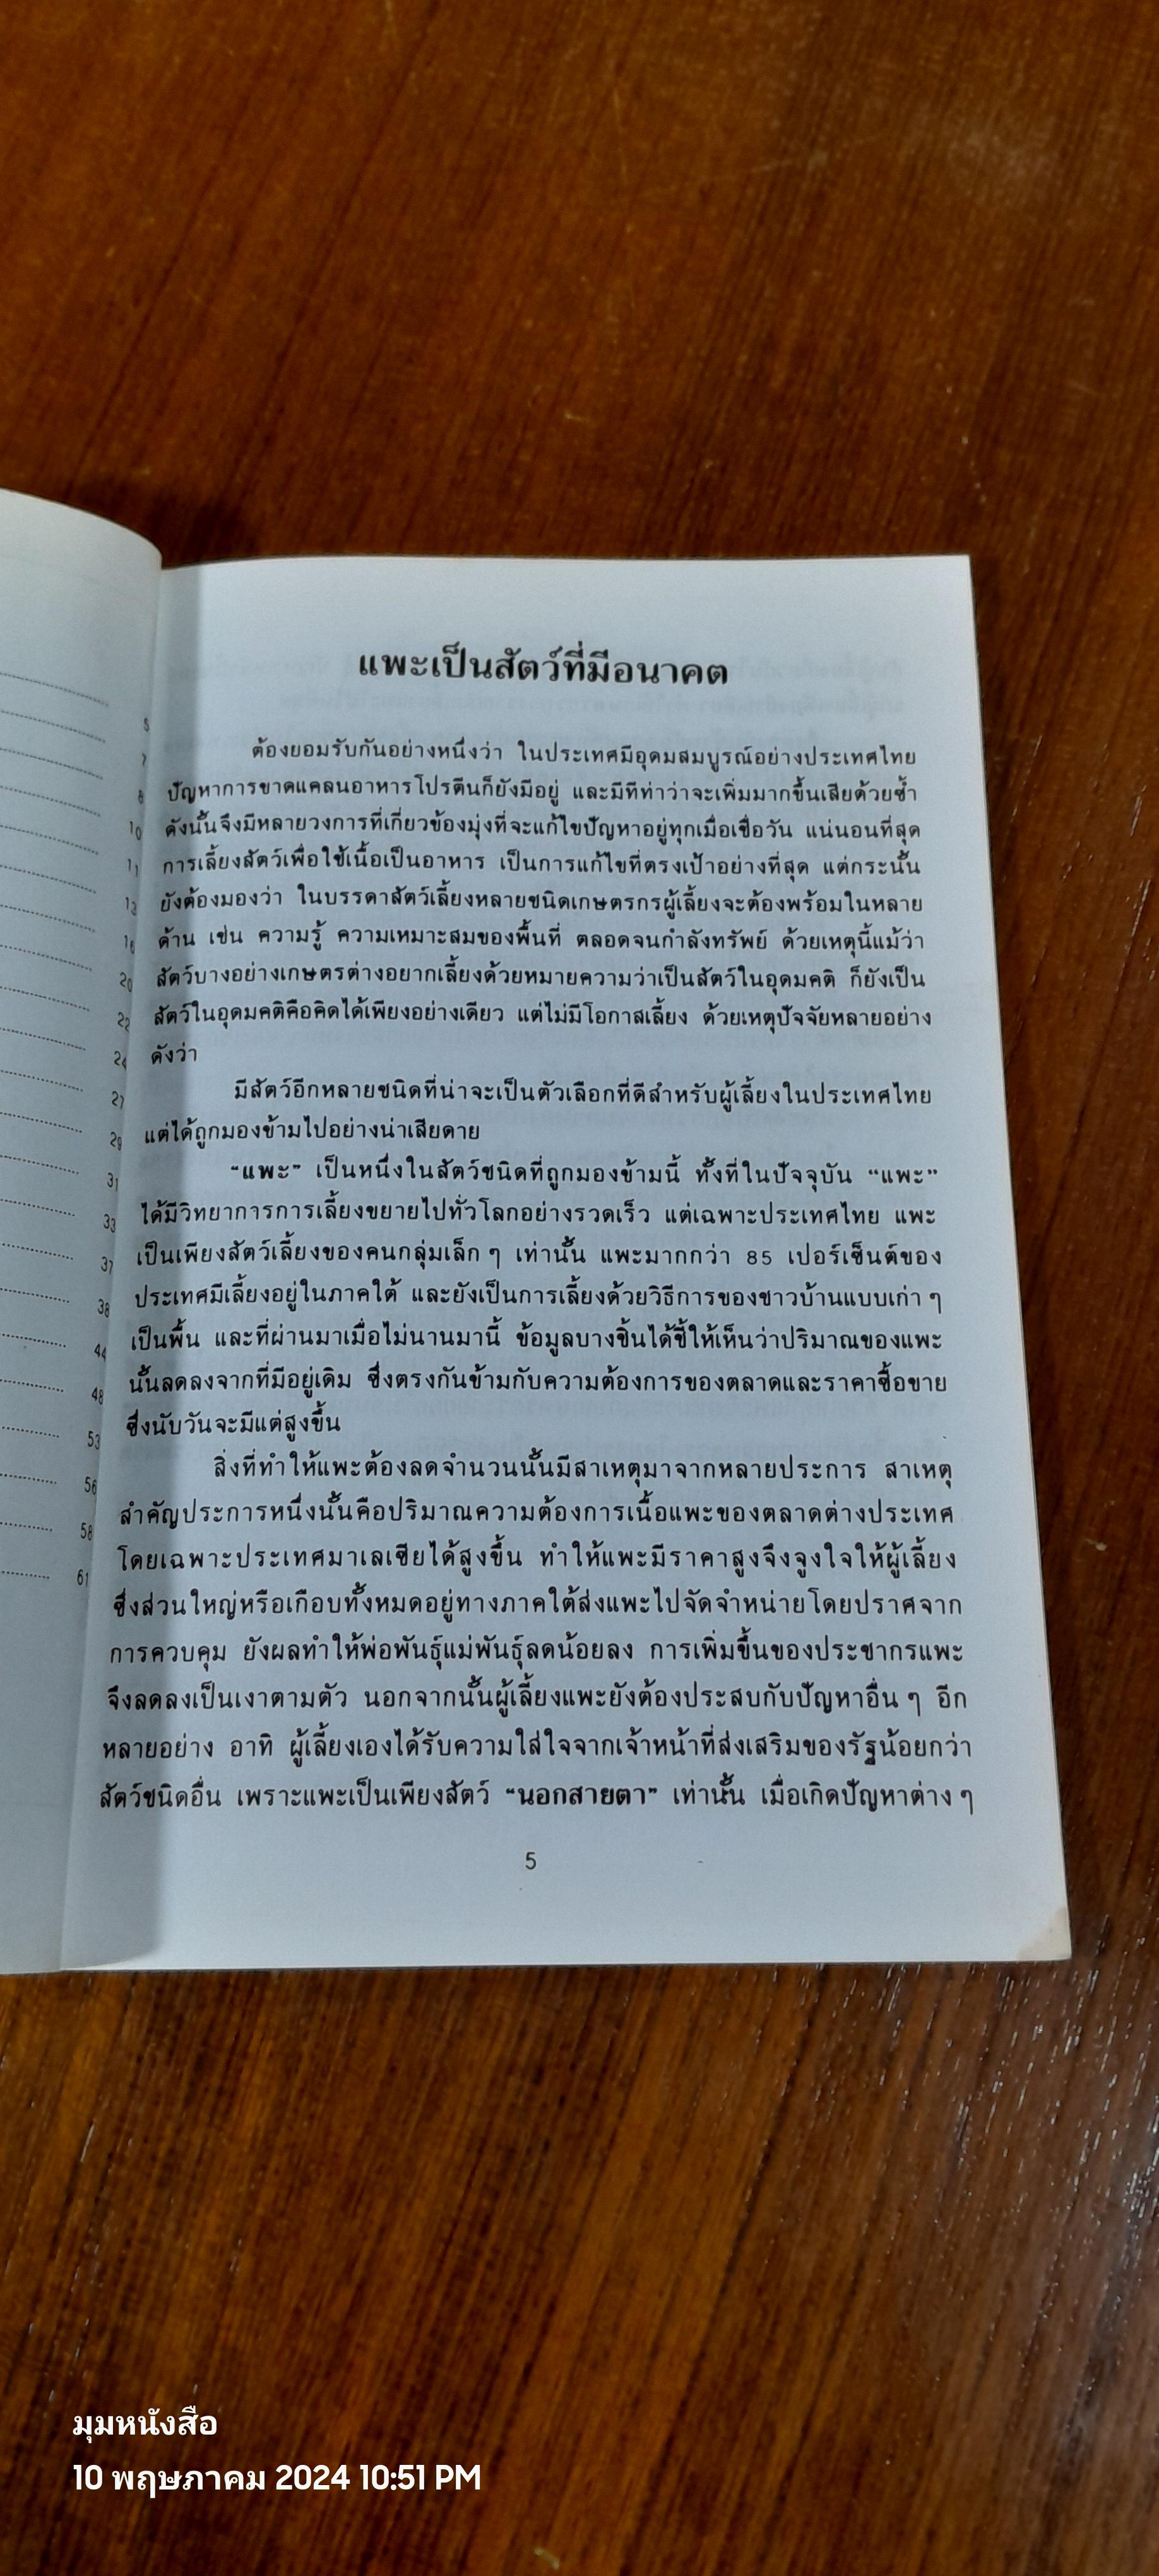 5
7
8
10
11
13
16
20
22
24
27
29
31
33
37
38
44
48
53
56
58
61
แพะเป็นสัตว์ที่มีอนาคต
ต้องยอมรับกันอย่างหนึ่งว่า ในประเทศมีอุดมสมบูรณ์อย่างประเทศไทย
ปัญหาการขาดแคลนอาหารโปรตีนก็ยังมีอยู่ และมีทีท่าว่าจะเพิ่มมากขึ้นเสียด้วยซ้ำ
ดังนั้นจึงมีหลายวงการที่เกี่ยวข้องมุ่งที่จะแก้ไขปัญหาอยู่ทุกเมื่อเชื่อวัน แน่นอนที่สุด
การเลี้ยงสัตว์เพื่อใช้เนื้อเป็นอาหาร เป็นการแก้ไขที่ตรงเป้าอย่างที่สุด แต่กระนั้น
ยังต้องมองว่า ในบรรดาสัตว์เลี้ยงหลายชนิดเกษตรกรผู้เลี้ยงจะต้องพร้อมในหลาย
ด้าน เช่น ความรู้ ความเหมาะสมของพื้นที่ ตลอดจนกำลังทรัพย์ ด้วยเหตุนี้แม้ว่า
สัตว์บางอย่างเกษตรต่างอยากเลี้ยงด้วยหมายความว่าเป็นสัตว์ในอุดมคติ ก็ยังเป็น
สัตว์ในอุดมคติคือคิดได้เพียงอย่างเดียว แต่ไม่มีโอกาสเลี้ยง ด้วยเหตุปัจจัยหลายอย่าง
ดังว่า
มีสัตว์อีกหลายชนิดที่น่าจะเป็นตัวเลือกที่ดีสำหรับผู้เลี้ยงในประเทศไทย
แต่ได้ถูกมองข้ามไปอย่างน่าเสียดาย
“แพะ” เป็นหนึ่งในสัตว์ชนิดที่ถูกมองข้ามนี้ ทั้งที่ในปัจจุบัน “แพะ”
ได้มีวิทยาการการเลี้ยงขยายไปทั่วโลกอย่างรวดเร็ว แต่เฉพาะประเทศไทย แพะ
เป็นเพียงสัตว์เลี้ยงของคนกลุ่มเล็ก ๆ เท่านั้น แพะมากกว่า 85 เปอร์เซ็นต์ของ
ประเทศมีเลี้ยงอยู่ในภาคใต้ และยังเป็นการเลี้ยงด้วยวิธีการของชาวบ้านแบบเก่า ๆ
เป็นพื้น และที่ผ่านมาเมื่อไม่นานมานี้ ข้อมูลบางชิ้นได้ชี้ให้เห็นว่าปริมาณของแพะ
นั้นลดลงจากที่มีอยู่เดิม ซึ่งตรงกันข้ามกับความต้องการของตลาดและราคาซื้อขาย
ซึ่งนับวันจะมีแต่สูงขึ้น
สิ่งที่ทำให้แพะต้องลดจำนวนนั้นมีสาเหตุมาจากหลายประการ สาเหตุ
สำคัญประการหนึ่งนั้นคือปริมาณความต้องการเนื้อแพะของตลาดต่างประเทศ
โดยเฉพาะประเทศมาเลเซียได้สูงขึ้น ทำให้แพะมีราคาสูงจึงจูงใจให้ผู้เลี้ยง
ซึ่งส่วนใหญ่หรือเกือบทั้งหมดอยู่ทางภาคใต้ส่งแพะไปจัดจำหน่ายโดยปราศจาก
การควบคุม ยังผลทำให้พ่อพันธุ์แม่พันธุ์ลดน้อยลง การเพิ่มขึ้นของประชากรแพะ
จึงลดลงเป็นเงาตามตัว นอกจากนั้นผู้เลี้ยงแพะยังต้องประสบกับปัญหาอื่น ๆ อีก
หลายอย่าง อาทิ ผู้เลี้ยงเองได้รับความใส่ใจจากเจ้าหน้าที่ส่งเสริมของรัฐน้อยกว่า
สัตว์ชนิดอื่น เพราะแพะเป็นเพียงสัตว์ “นอกสายตา” เท่านั้น เมื่อเกิดปัญหาต่าง ๆ
5
มุมหนังสือ
10 พฤษภาคม 2024 10:51 PM